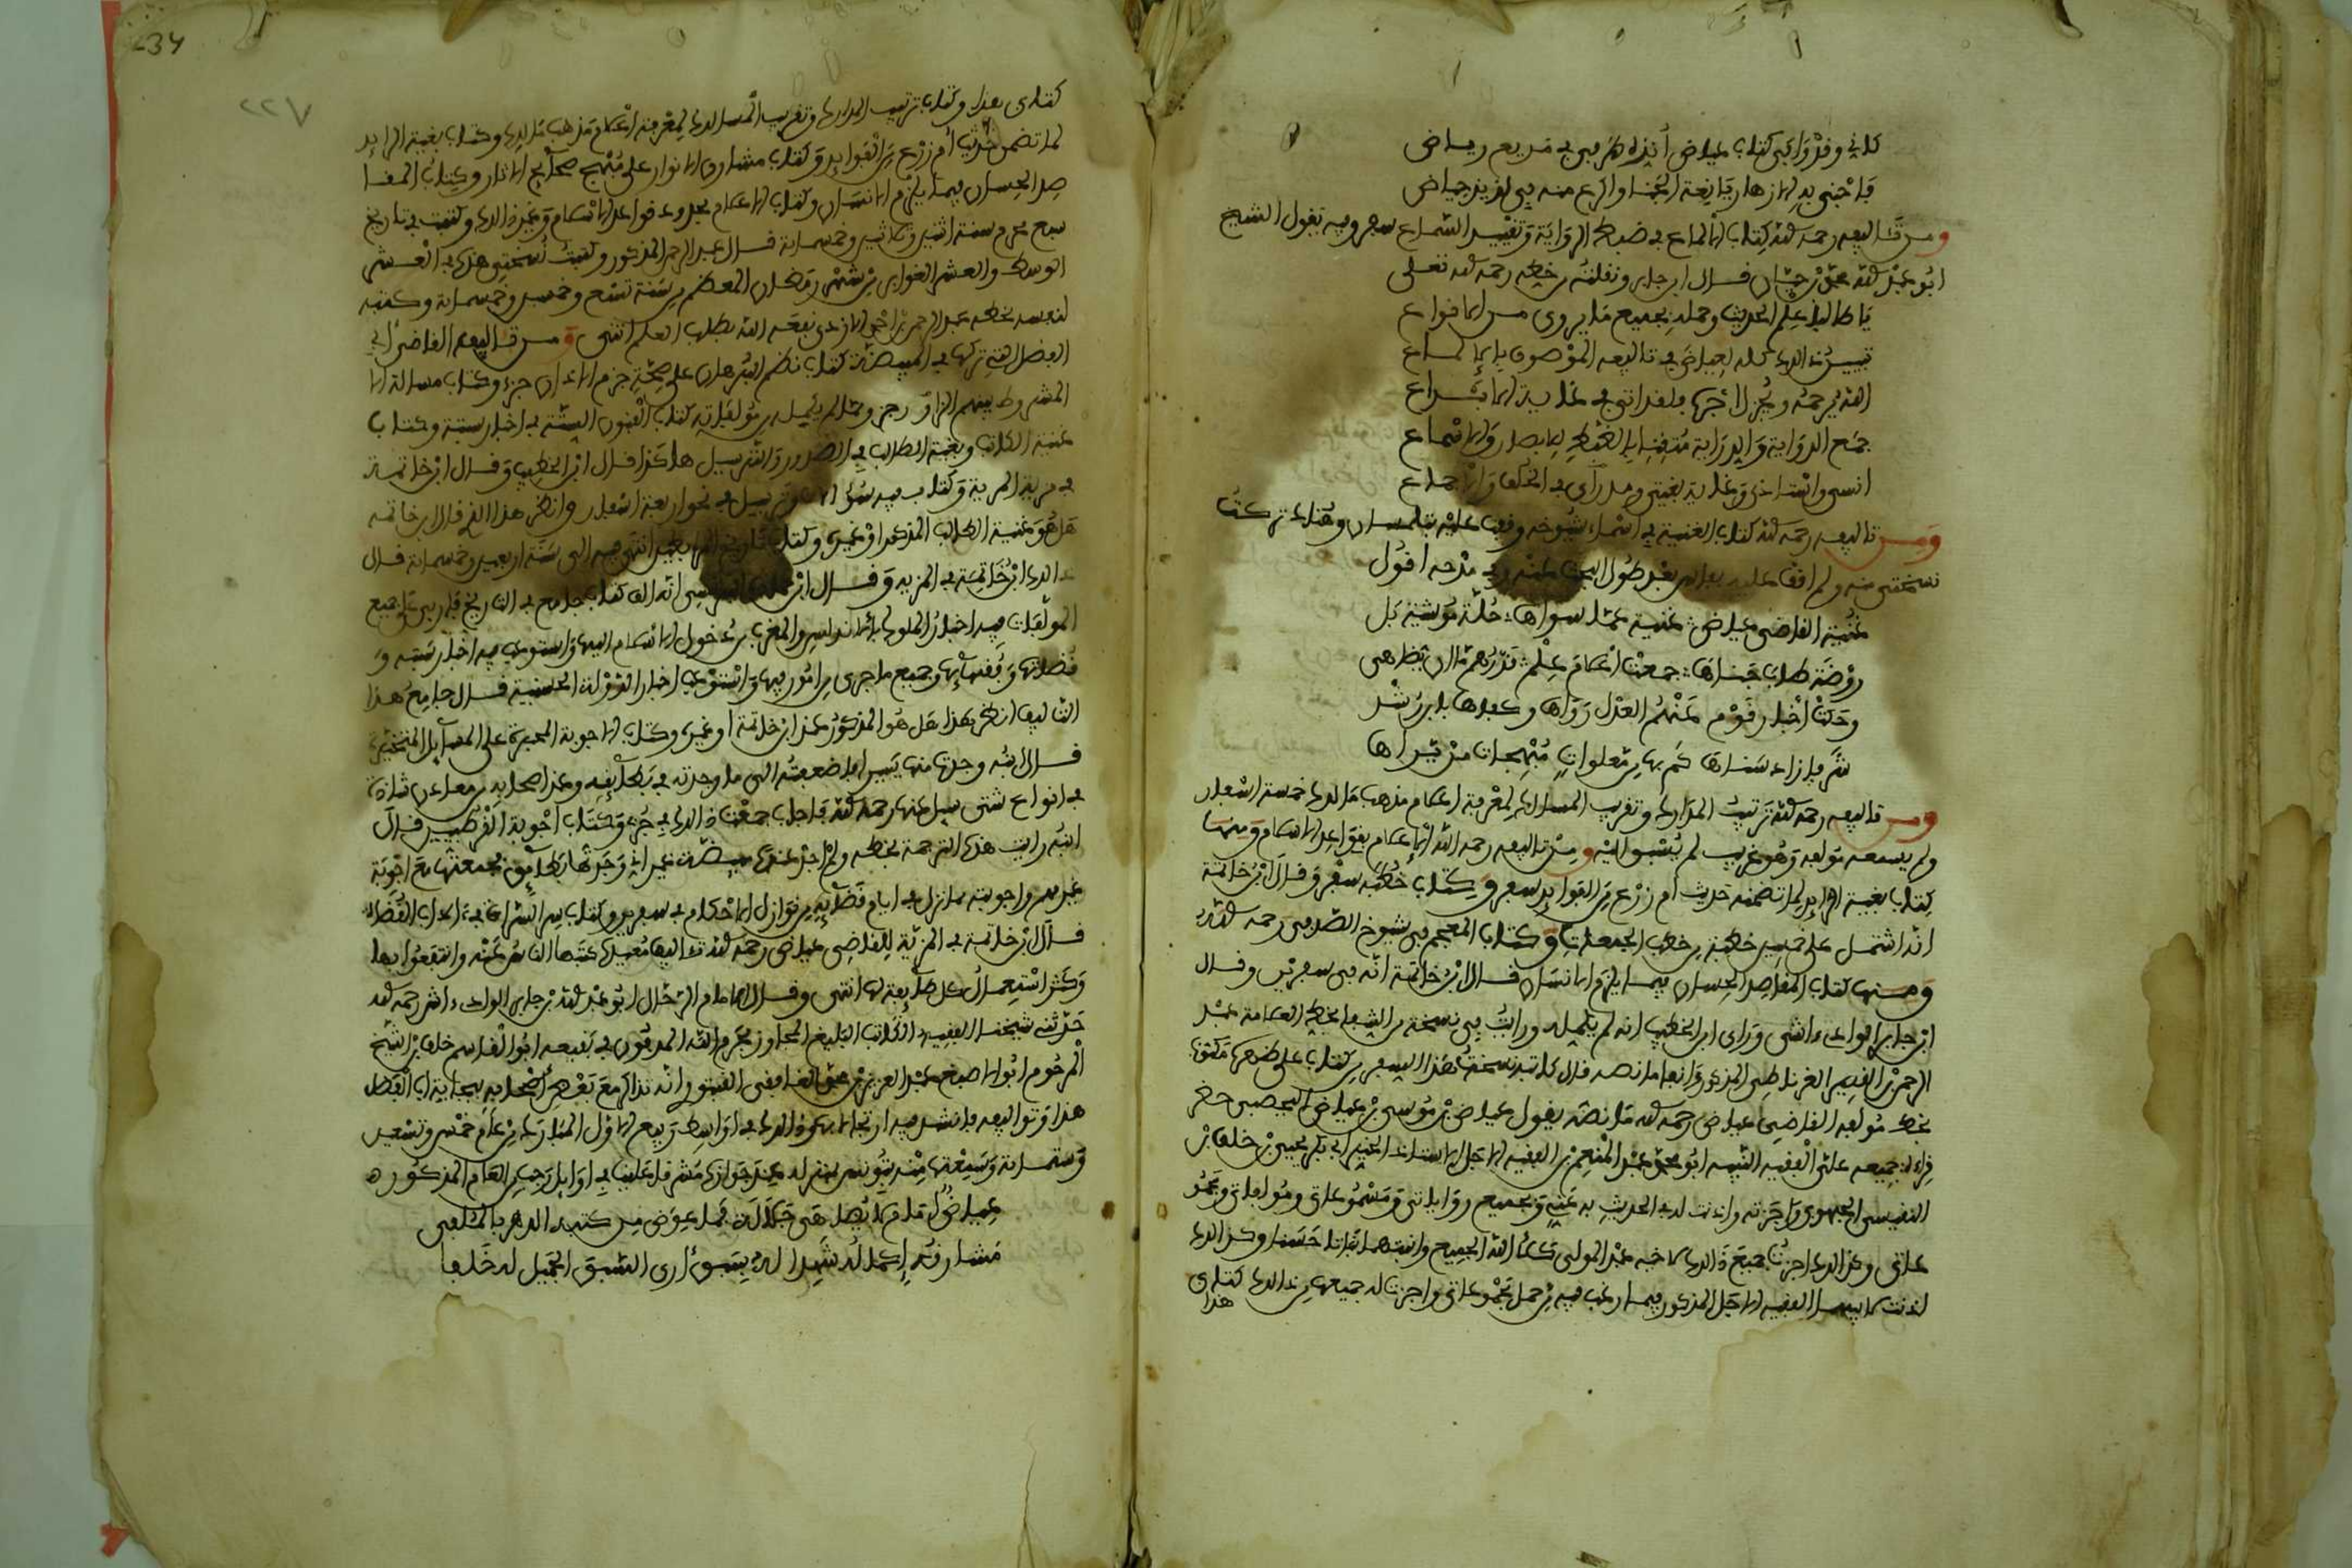 كاني وقد وافى كتاب عياض أنزه طرفي في مريع رياض
فأجني به الأزهار يانعة الجنا وأكرع منه في لذيذ حياض
ومن تواليفه رحمه الله كتاب الإلماع في ضبط الرواية وتقييد السماع سفر وفيه يقول الشيخ
أبو عبد الله محمد بن حيان قال ابن جابر ونقلته من خطه رحمه الله تعلى
يا طالبا علم الحديث وحمله بجميع ما يروى من الأنواع
تيسير ذلك كله لعياض في تأليفه الموصوف بالإلماع
الله يرحمه ويجزل أجره فلقد أتى في غاية الإبداع
جمع الرواية والدراية متقنا بالضبط للإيصال والإسماع
أنسى وأستاذي وغاية بغيتي وملاذي في الخلف والإجماع
ومن تأليفه رحمه الله كتاب الغنية في أسماء شيوخه وقفت عليه بتلمسان وهناك تركت
نسختي منه ولم أقف عليه بفاس بعد طول البحث عنه وفي مدحه أقول
غنية القاضي عياض غنية عما سواها حلة موشية بل
روضة طاب جناها جمعت أعلام علم قدرهم ما إن يضاهى
وحكت أخبار قوم عنهم العدل رواها وكفاها يا بن رشد
شرفا زاد سناها كم بها من معلوات مبهجات من تراها
ومن تواليفه رحمه الله ترتيب المدارك وتقريب المسالك لمعرفة أعلام مذهب مالك خمسة أسفار
ولم يسمعه مؤلفه وهو غريب لم يسبق إليه ومن تأليفه رحمه الله الإعلام بقواعد الإسلام ومنها
كتاب بغية الرائد لما تضمنه حديث أم زرع من الفوائد سفر وكتاب خطبه سفر وقال ابن خاتمة
أنه اشتمل على خمسين خطبة من خطب الجمعات وكتاب المعجم في شيوخ الصدفي رحمه الله
ومنها كتاب المقاصد الحسان فيما يلزم الإنسان قال ابن خاتمة أنه في سفرين وقال
ابن جابر الوادءاشي ورأى ابن الخطيب أنه لم يكمله ورأيت في نسخة من الشفا بخط العلامة عبد
الرحمن القصير الغرناطي المذكور آنفا ما نصه قال كاتبه نسخت هذا السفر من كتاب على ظهره مكتوب
بخط مؤلفه القاضي عياض رحمه الله ما نصه يقول عياض بن موسى بن عياض اليحصبي حضر
قراءة جميعه علي الفقيه النبيه أبو محمد عبد المنعم بن الفقيه الأجل الأستاذ الخير أبي بكر يحيى بن خلف بن
النفيس الحميري وأجزته وأذنت له في الحديث به عني وبجميع رواياتي ومسموعاتي ومؤلفاتي ومجمو
عاتي وكذلك أجزت جميع ذلك لأخيه عبد المولى كلأ الله الجميع وأنبتهما نباتا حسنا وكذلك
أذنت لأبيهما الفقيه الأجل المذكور فيما رغب فيه من حمل مجموعاتي وأجزت له جميعها من ذلك كتابي
هذا
234
٢٢٧
كتابي هذا وكتاب ترتيب المدارك وتقريب المسالك لمعرفة أعلام مذهب مالك وكتاب بغية الرائد
لما تضمن حديث أم زرع من الفوائد وكتاب مشارق الأنوار على منهج صحايح الآثار وكتاب المقا
صد الحسان فيما يلزم الإنسان وكتاب الإعلام بحدود قواعد الإسلام وغير ذلك وكتبت في تاريخ
سبع محرم سنة اثنين وثلاثين وخمسمائة قال عبد الرحمن المذكور وكتبت نسختي هذه في العشر
الوسط والعشر الغوابر من شهر رمضان المعظم من سنة تسع وخمسين وخمسمائة وكتبه
لنفسه بخطه عبد الرحمن بن أحمد الأزدي نفعه الله بطلب العلم انتهى ومن تواليف القاضي أبي
الفضل التي تركها في المبيضة كتاب نظم البرهان على صحة جزم الأذان جزء وكتاب مسألة الأ
المشروط بينهم التزاور جزء ومما لم يكمله من مؤلفاته كتاب الفنون الستة في أخبار سبتة وكتاب
غنية الكاتب وبغية الطالب في الصدور والترسيل هكذا قال ابن الخطيب وقال ابن خاتمة
في مزية المرية وكتاب فيه سؤالات وترسيل في نحو أربعة أسفار وانظر هذا الذي قال ابن خاتمة
هل هو غنية الكاتب المذكور أو غيره وكتاب تاريخ المرابطين انتهى فيه إلى سنة أربعين وخمسمائة قال
ذلك ابن خاتمة في المزية وقال أنه ألف كتاب جامع في التاريخ فأربى على جميع
المؤلفات فيه أخبار الملوك بالأندلس والمغرب من دخول الإسلام إليها واستوعب فيه أخبار سبتة و
فضلائها وفقهائها وجميع ما جرى من الأمور فيها واستوعب أخبار الدولة الحسنية قال جامع هذا
التأليف انظر هذا هل هو المذكور عند ابن خاتمة أو غيره وكتاب الأجوبة المحبرة على المسائل المتخيرة
قال ابنه وجدت منها يسيرا فأضفته إلى ما وجدته في بطائقه وعند أصحابه من معان شاذة
في أنواع شتى سيل عنها رحمه الله فأجاب جمعت ذلك في جزء وكتاب أجوبة القرطبيين قال
ابنه رأيت هذه الترجمة بخطه ولم أجد عنده مبيضة غير أني وجدتها بطايق فجمعتها مع أجوبة
غيرهم وأجوبته مما نزل في أيام قضائه من نوازل الأحكام في سفر وكتاب سر السراة في أدب القضاة
قال ابن خاتمة في المزية للقاضي عياض رحمه الله تواليف مفيدة كتبها الناس عنه وانتفعوا بها
وكثر استعمال كل طائفة لها انتهى وقال الإمام الرحال أبو عبد الله بن جابر الوادءاشي رحمه الله
حدثنا شيخنا الفقيه الكاتب البليغ المجاور بحرم الله المدفون في بقيعه أبو القاسم خلف بن الشيخ
المرحوم أبو الأصبغ عبد العزيز بن محمد الغافقي القبتوري أنه تذاكر مع بعض أصحابه ببجاية أبا الفضل
هذا وتواليفه فأنشد فيه ارتجالا بهذه وذلك في أواسط ربيع الأول المبارك من عام خمس وتسعين
وستمائة وسمعتها منه بتونس بمنزله عند جوازه مشرقا علينا في أوائل رجب من العام المذكور
عياض كلام لا يضاهى جلالة فما عوض من كتبه الدهر بالملفى
مشارق إكمال شفا لدي سمو أرى السبق الجميل له خلفا